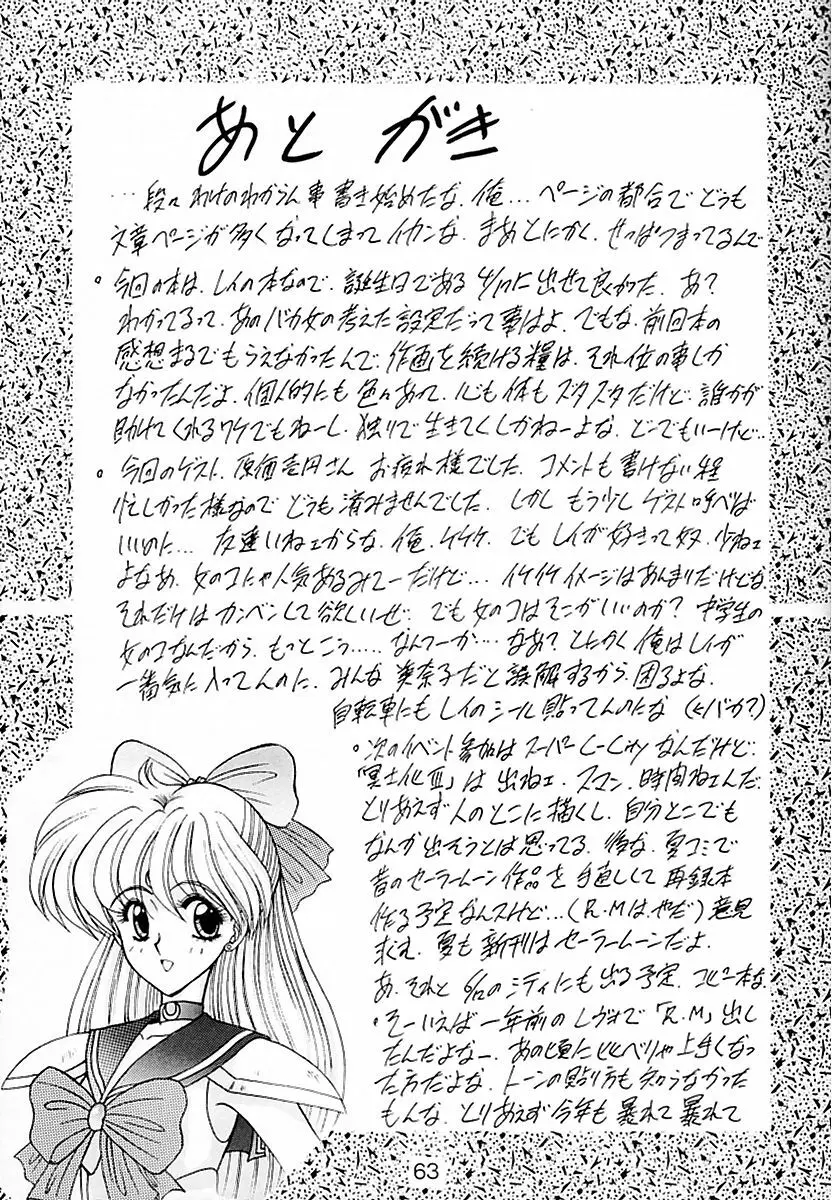 あとがき
…段々わけのわからん事書き始めたな、俺…ページの都合でどうも
文章ページが多くなってしまってイカンな。まあとにかく、せっぱつまってるんで
。今回の本は、レイの本なので、誕生日である4/17に出せて良かった。あ?
わかってるって、あのバカ女の考えた設定だって事はよ。でもな、前回本の
感想まるでもらえなかったんで、作画を続ける糧は、それ位の事しか
なかったんだよ。個人的にも色々あって、心も体もズタズタだけど、誰かが
助けてくれるワケでもねーし、独りで生きてくしかねーよな。どーでもいーけど…
。今回のゲスト、原価壱円さん お疲れ様でした。コメントも書けない程
忙しかった様なので どうも済みませんでした。しかし もう少しゲスト呼べりば
いいのに… 友達いねェからな、俺。ケケケ。でもレイが好きって奴、少ねェ
よなあ。女のコにゃ人気あるみてーだけど… イケイケイメージはあんまりだけどな
それだけはカンベンして欲しいぜ。でも女のコはそこがいいのか? 中学生の
女のコなんだから、もっとこう…… なんつーか… なあ? とにかく俺はレイが
一番気に入ってんのに、みんな 美奈子だと誤解するから、困るよな。
自転車にも レイのシール貼ってんのにな (←バカ?)
。次のイベント参加は スーパーC-City なんだけど、
「冥土化Ⅲ」は 出ねェ。スマン、時間ねェんだ。
とりあえず人のとこに描くし、自分とこでも
なんか出そうとは思ってる。 夏コミで
昔のセーラームーン作品を 手直しして 再録本
作る予定なんスけど…(R.Mはやだ) 意見
求む。夏も 新刊はセーラームーンだよ。
あ、それと 6/10のシティにも 出る予定。コピー本な。
。そーいえば 一年前のレヴォで「R.M」出し
たんだよなー。あの頃に比べりゃ 上手くなっ
た方だよな。トーンの貼り方も 知らなかった
もんな。とりあえず 今年も 暴れて 暴れて
63